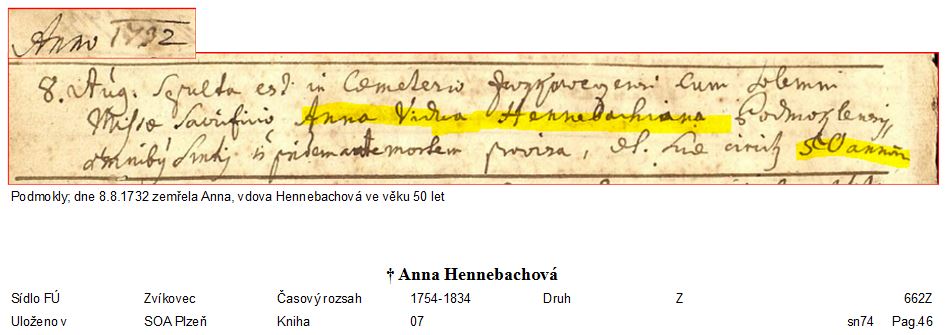 Anno 1732
8. Aug. Sepulta est in Cemeterio cum solemni
Missae Sacrificio Anna Vidua Hennebachiana Podmoklensis
omnibus ante mortem provisa, 50 annorum
Podmokly; dne 8.8.1732 zemřela Anna, vdova Hennebachová ve věku 50 let
† Anna Hennebachová
Sídlo FÚ Zvíkovec Časový rozsah 1754-1834 Druh Z 662Z
Uloženo v SOA Plzeň Kniha 07 sn74 Pag.46